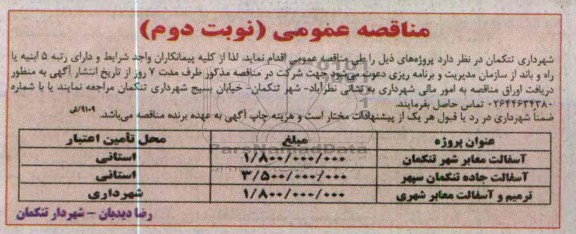 مناقصه عمومی (نوبت دوم)
شهرداری تنکمان در نظر دارد پروژه‌های ذیل را طی مناقصه عمومی اقدام نماید. لذا از کلیه پیمانکاران واجد شرایط و دارای رتبه ۵ ابنیه یا
راه و باند از سازمان مدیریت و برنامه ریزی دعوت می‌شود جهت شرکت در مناقصه مذکور ظرف مدت ۷ روز از تاریخ انتشار آگهی به منظور
دریافت اوراق مناقصه به امور مالی شهرداری به نشانی نظرآباد- شهر تنکمان- خیابان بسیج شهرداری تنکمان مراجعه نمایند یا با شماره
۰۲۶۴۴۶۳۴۳۸۰ تماس حاصل بفرمایند.
ضمناً شهرداری در رد یا قبول هر یک از پیشنهادات مختار است و هزینه چاپ آگهی به عهده برنده مناقصه می‌باشد. ۹۱۰۹/ف
عنوان پروژه مبلغ محل تأمین اعتبار
آسفالت معابر شهر تنکمان ۱/۸۰۰/۰۰۰/۰۰۰ استانی
آسفالت جاده تنکمان سپهر ۳/۵۰۰/۰۰۰/۰۰۰ استانی
ترمیم و آسفالت معابر شهری ۱/۸۰۰/۰۰۰/۰۰۰ شهرداری
رضا دیدبان - شهردار تنکمان
ParsNamadData